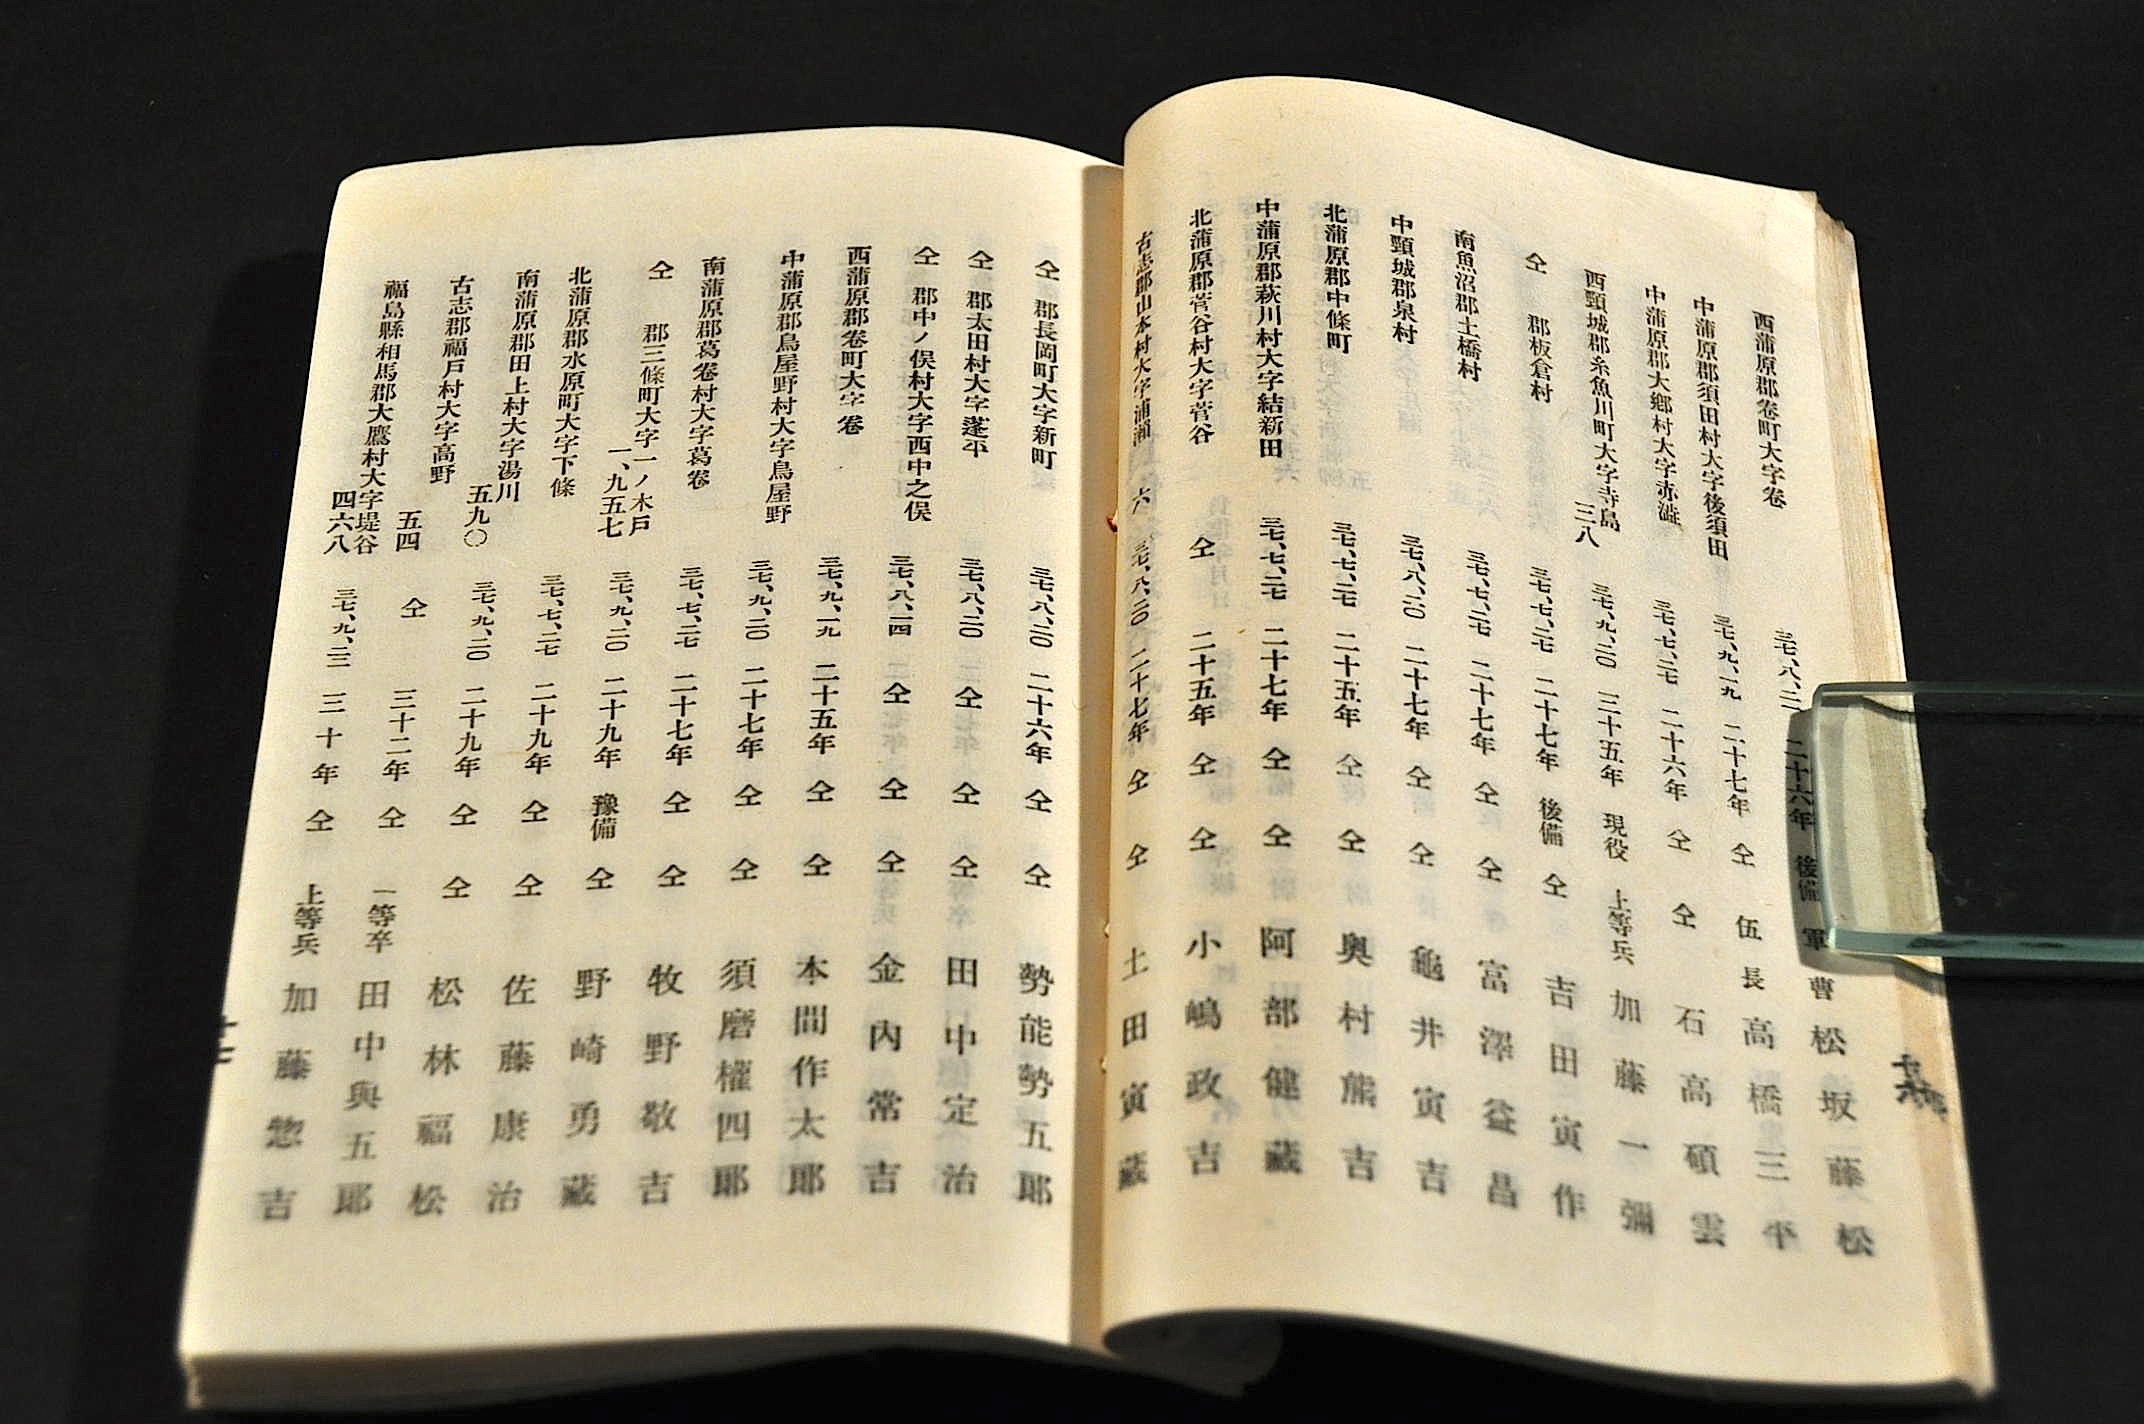 西蒲原郡卷町大字卷 三七、八、二 二十六年 後備 軍曹 松坂藤松
中蒲原郡須田村大字後須田 三七、九、一九 二十七年 仝 伍長 高橋 三平
中蒲原郡大郷村大字赤澁 三七、七、二七 二十六年 仝 仝 石高碩雲
西頸城郡糸魚川町大字寺島 三八 三七、九、二〇 三十五年 現役 上等兵 加藤一彌
仝 郡板倉村 三七、七、二七 二十七年 後備 仝 吉田寅作
南魚沼郡土橋村 三七、七、二七 二十七年 仝 仝 富澤益昌
中頸城郡泉村 三七、八、二〇 二十七年 仝 仝 龜井寅吉
北蒲原郡中條町 三七、七、二七 二十五年 仝 仝 奥村熊吉
中蒲原郡萩川村大字結新田 三七、七、二七 二十七年 仝 仝 阿部健藏
北蒲原郡菅谷村大字菅谷 仝 二十五年 仝 仝 小嶋政吉
古志郡山本村大字浦瀬 六 三七、八、二〇 二十七年 仝 仝 土田寅藏
十六
仝 郡長岡町大字新町 三七、八、二〇 二十六年 仝 仝 勢能勢五郎
仝 郡太田村大字蓬平 三七、八、二〇 仝 仝 仝 田中定治
仝 郡中ノ俣村大字西中之俣 三七、八、一四 仝 仝 仝 金内常吉
西蒲原郡卷町大字 卷 三七、九、一九 二十五年 仝 仝 本間作太郎
中蒲原郡鳥屋野村大字鳥屋野 三七、九、二〇 二十七年 仝 仝 須磨權四郎
南蒲原郡葛卷村大字葛卷 三七、七、二七 二十七年 仝 仝 牧野敬吉
仝 郡三條町大字一ノ木戸 一、九五七 三七、九、二〇 二十九年 豫備 仝 野崎勇藏
北蒲原郡水原町大字下條 三七、七、二七 二十九年 仝 仝 佐藤康治
南蒲原郡田上村大字湯川 五九〇 三七、九、二〇 二十九年 仝 仝 松林福松
古志郡福戸村大字高野 五四 仝 三十二年 仝 一等卒 田中與五郎
福島縣相馬郡大鷹村大字堤谷 四六八 三七、九、二三 三十年 仝 上等兵 加藤惣吉
十七